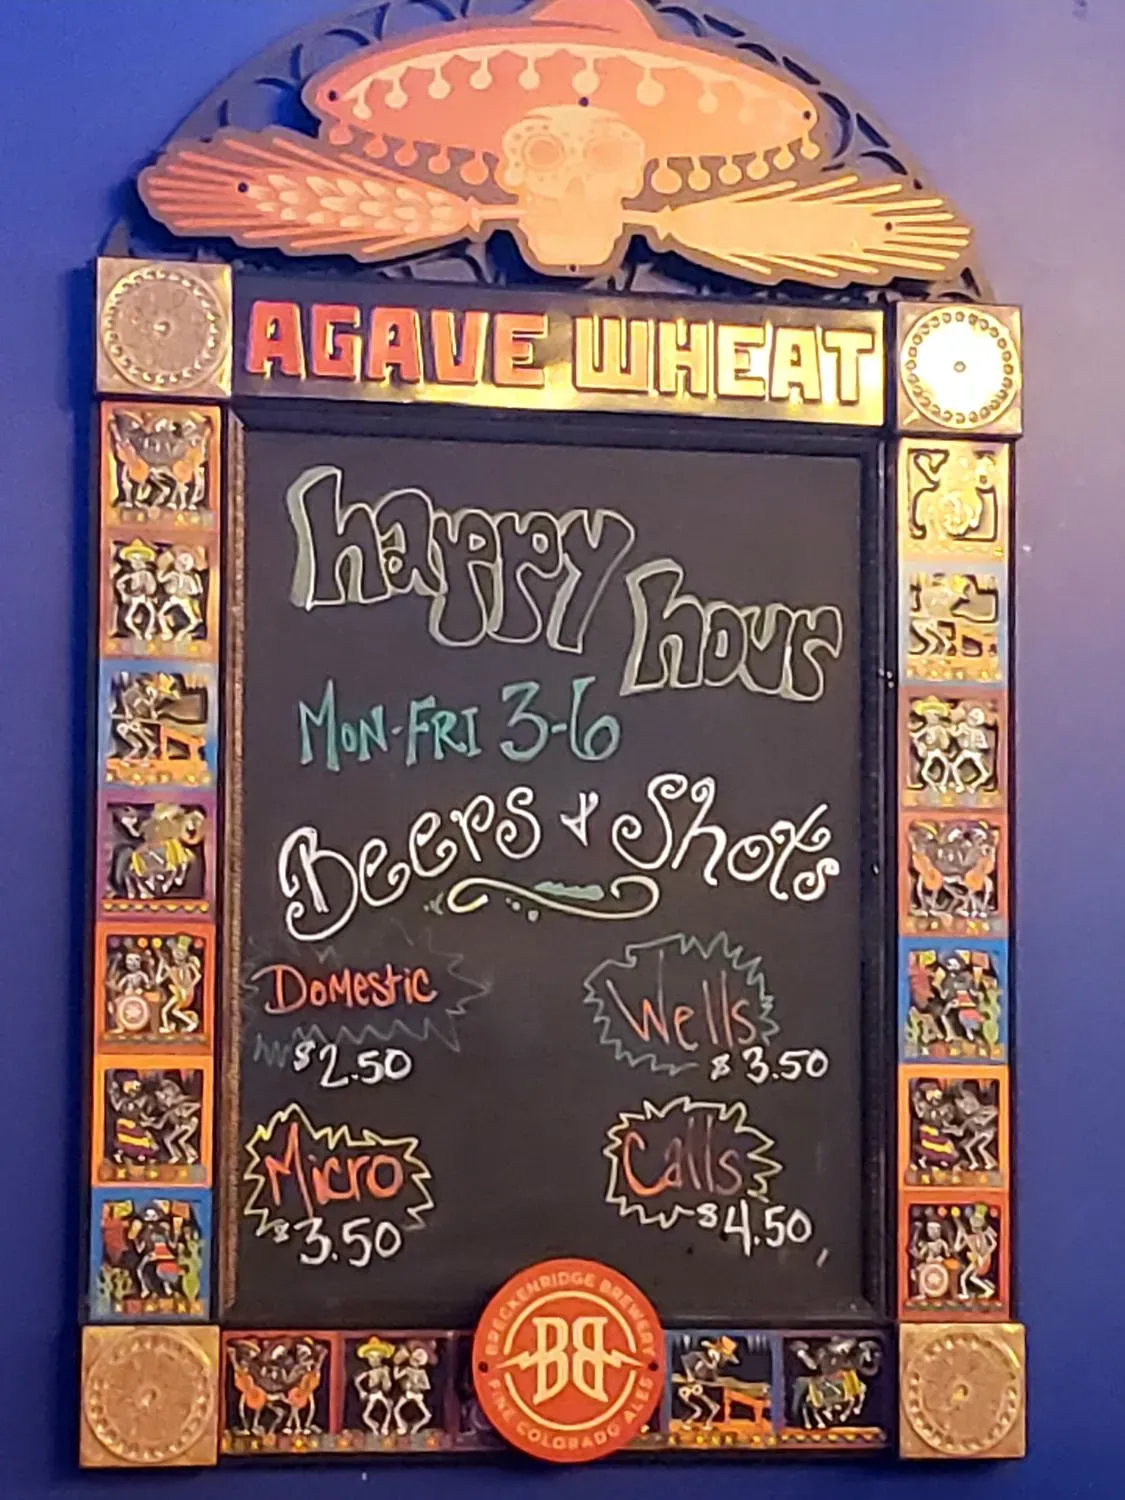 AGAVE WHEAT
happy hour
MON-FRI 3-6
Beers & Shots
Domestic
$2.50
Wells
$3.50
Micro
$3.50
Calls
$4.50
BRECKENRIDGE BREWERY
BB
FINE COLORADO ALES